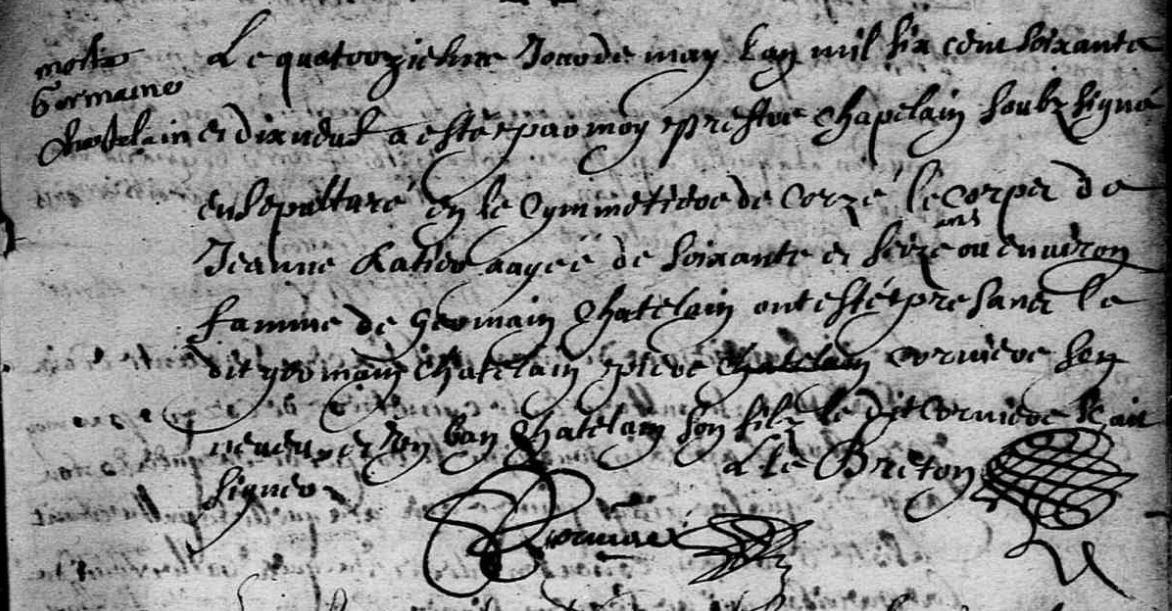 morte
Germaine
Chastelain
Le quatorziesme Jour de may Lan mil six cent soixante
et dix neuf a esté par moy prestre chapelain soubz signé
ensepulturé en le Cymmetiere de Corzé le corps de
Jeanne Ratier aagée de soixante et seize ans ou environ
famme de Germain Chatelain ont esté presans le
dit Germain Chatelain pierre Chatelain Corniere son
neveu, et Chatelain son filz le dit Corniere sait
signer
A Le Breton
Corniere